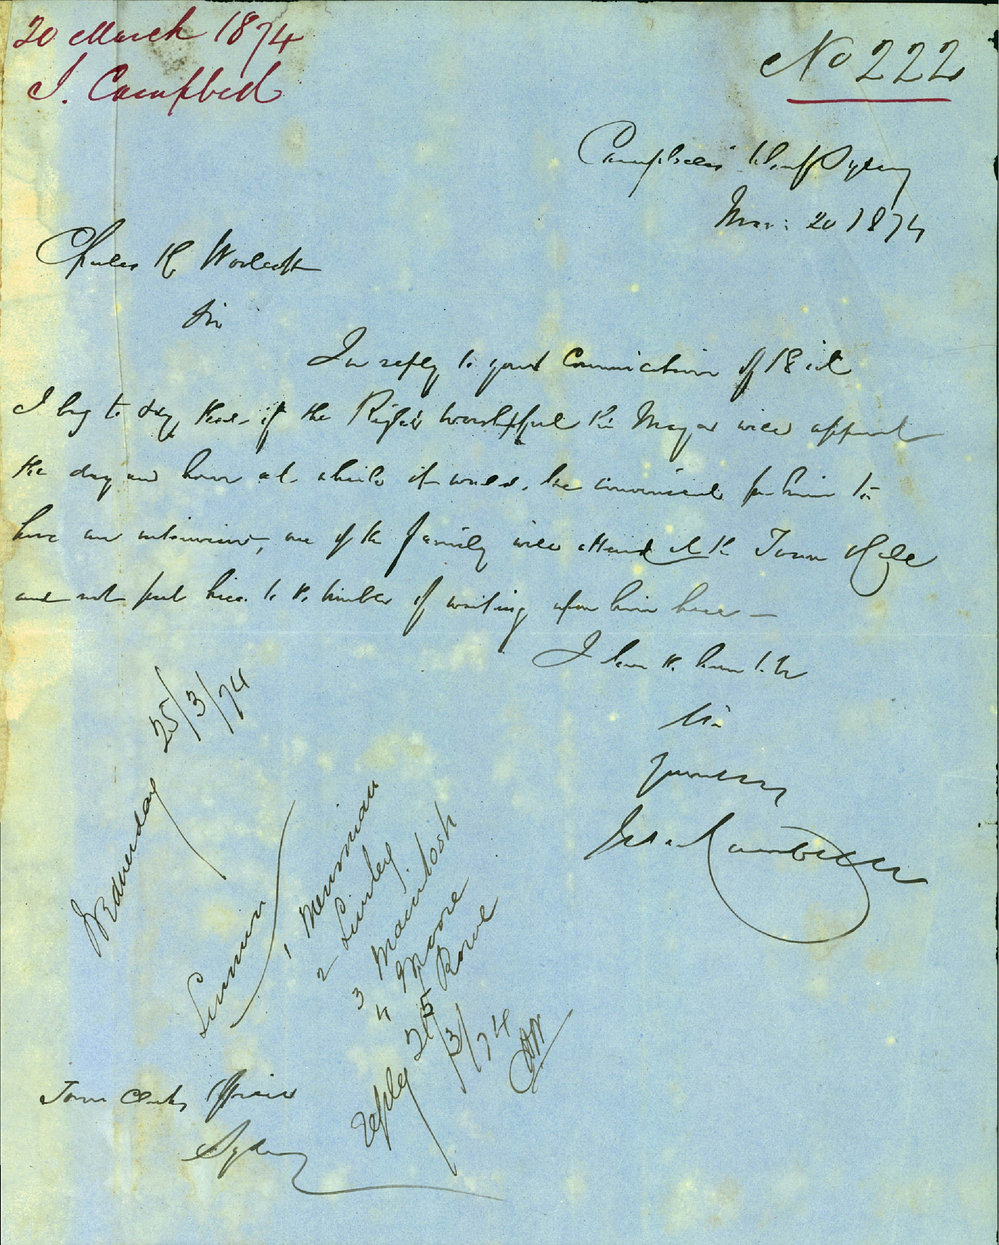 20 March 1874
J. Campbell
No 222
Campbells' Wharf Sydney
Mar: 20 1874
Charles H Woolcott
Sir
In reply to your of 18 inst
I beg to say that if the Right Worshipful the Mayor will appoint
the day and hour at which it would be convenient for him to
have an interview, one of the family will attend at the Town Hall
and not put him to the trouble of waiting upon him here —
I have the honor to be
Sir
Yours
Jno Campbell
Wednesday 25/3/74
Summon
1 Merriman
2 Linsley
3 Macintosh
4 Moore
5 Rowe
reply 26/3/74
Town Clerks Office
Sydney